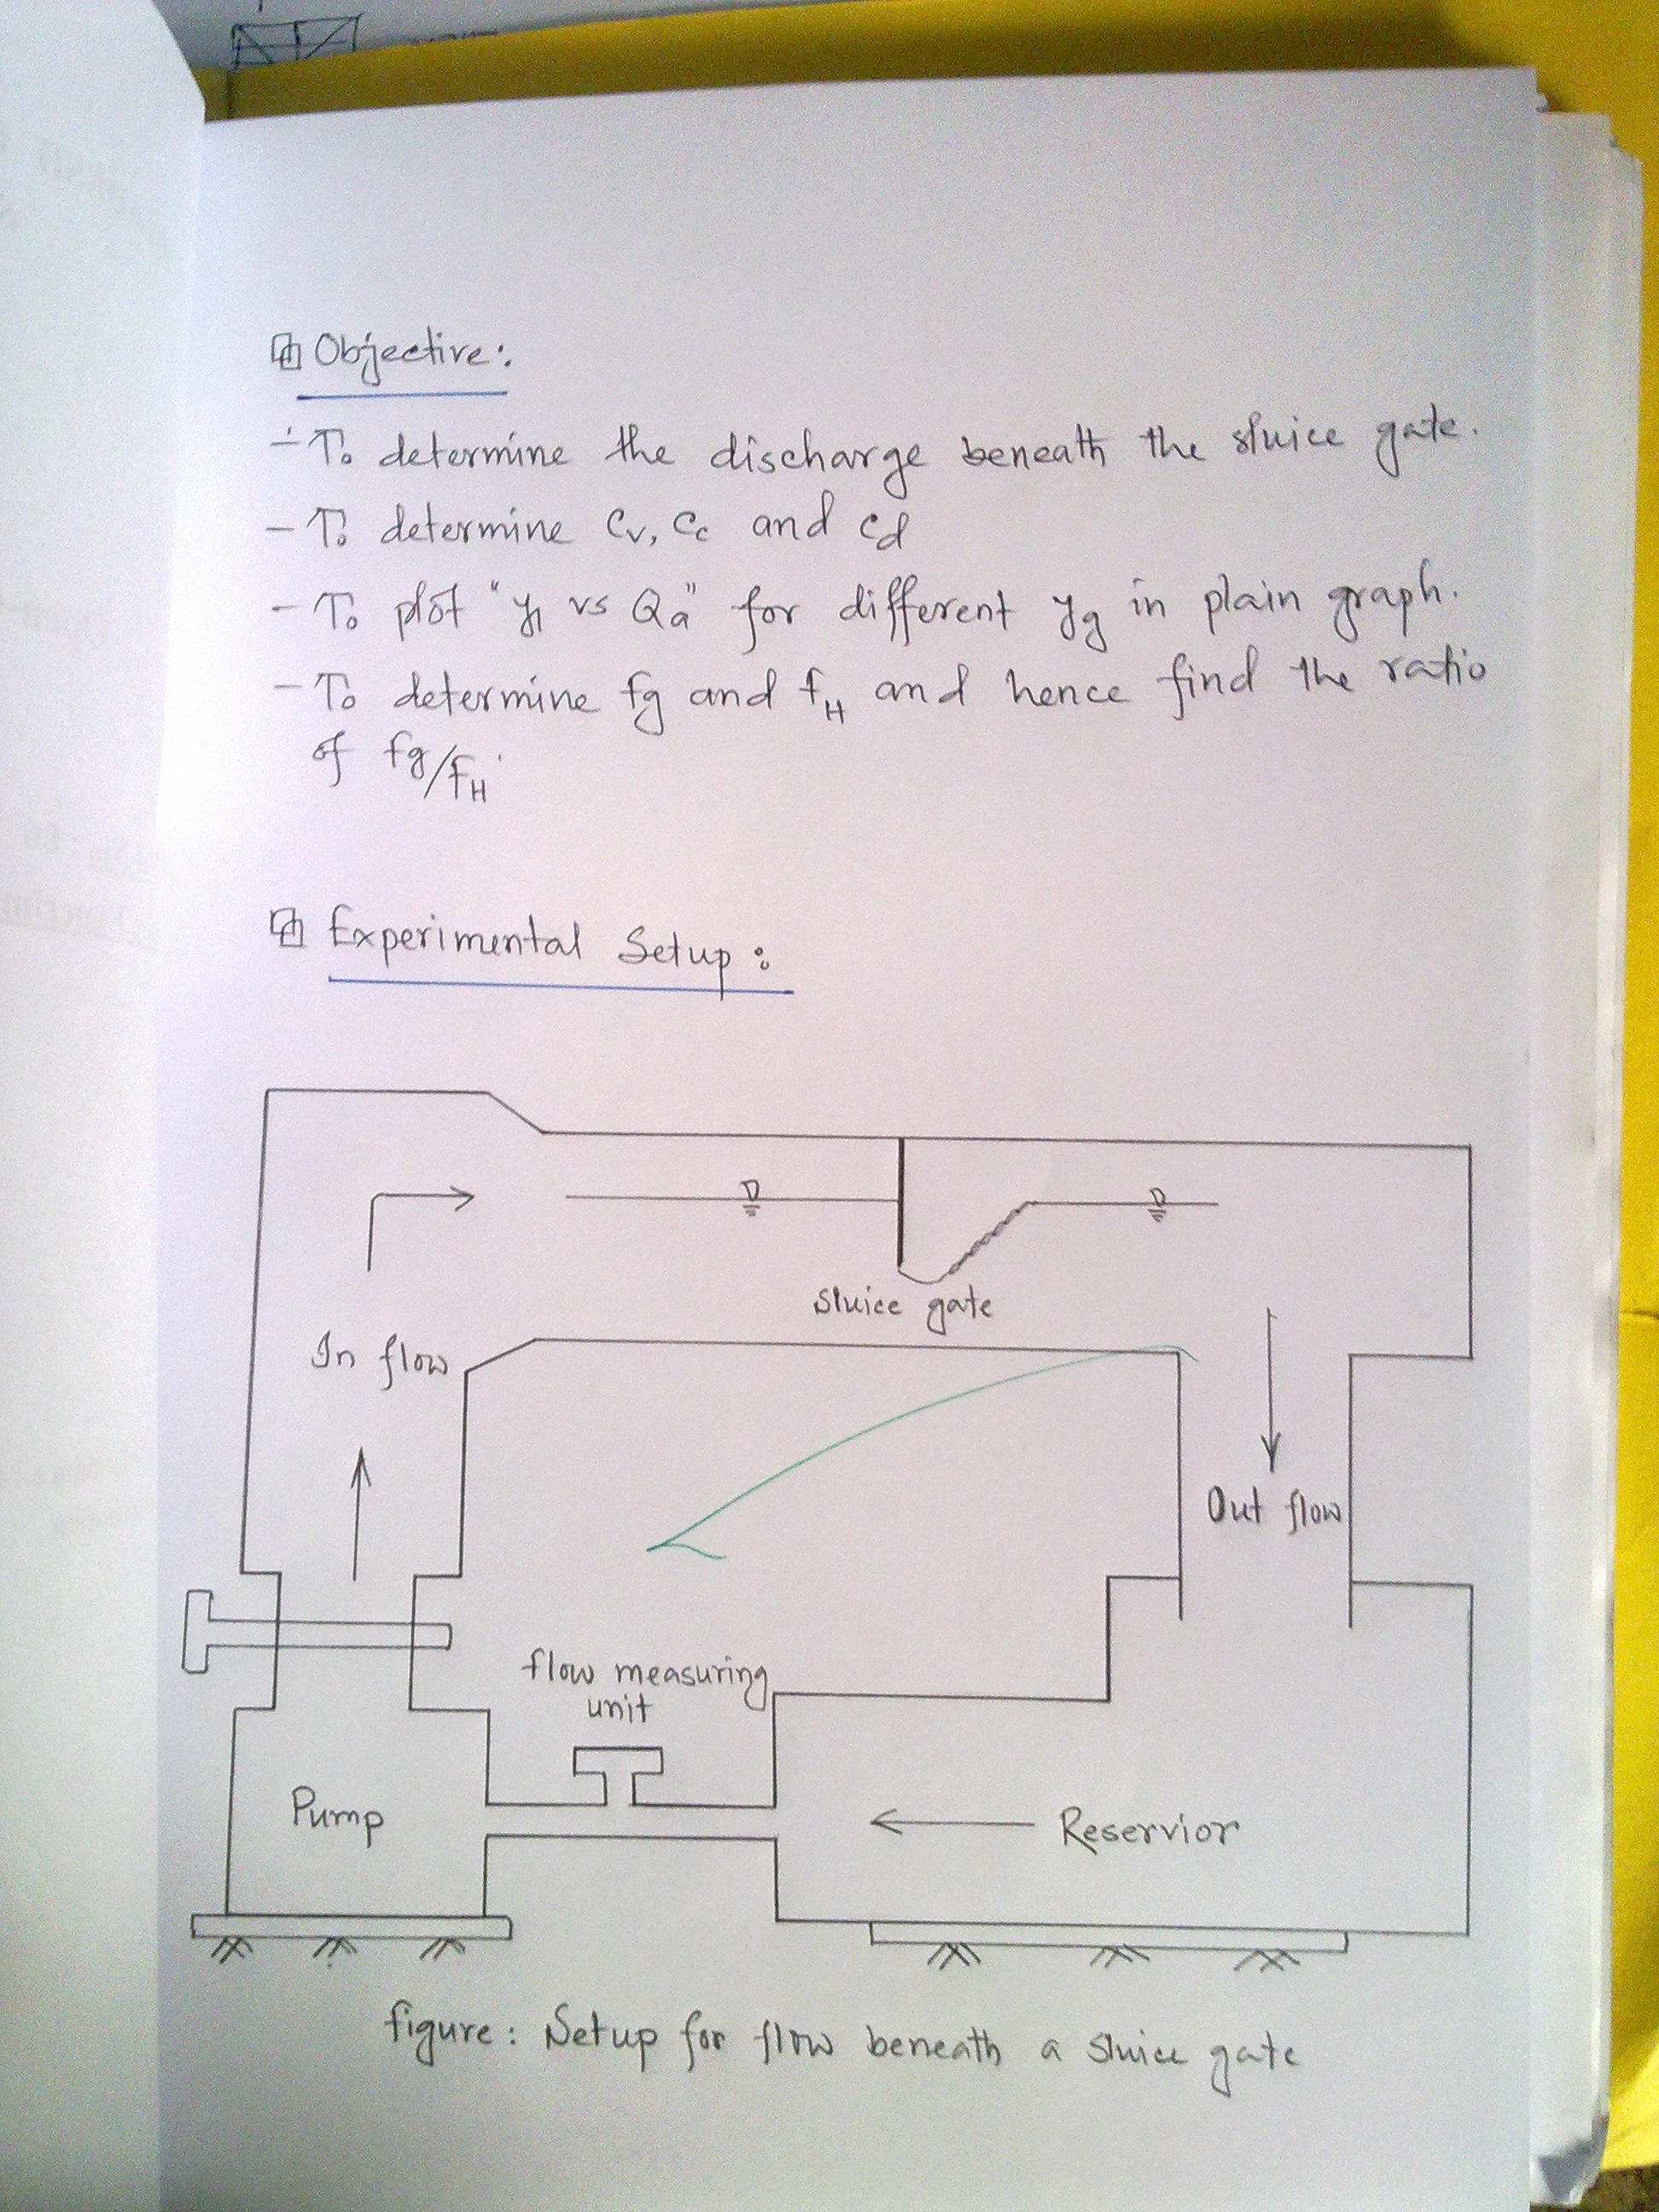 Objective:
- To determine the discharge beneath the sluice gate.
- To determine Cv, Cc and Cd
- To plot "y1 vs Qa" for different yg in plain graph.
- To determine Fg and FH and hence find the ratio
of Fg/FH.
Experimental Setup:
Sluice gate
In flow
Out flow
flow measuring
unit
Pump
Reservior
figure: Setup for flow beneath a sluice gate